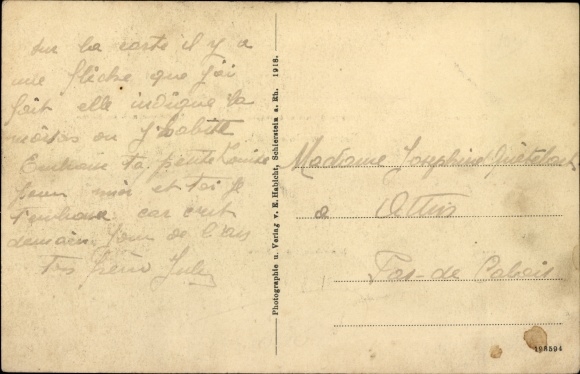 sur la carte il y a
une flèche que j'ai
fait elle indique la
maison ou j'habitte
Embrasse ta petite Louise
pour moi et toi je
car c'est
demain jour de l'an
Ton frère Jules
Photographie u. Verlag v. E. Habicht, Schierstein a. Rh. 1918.
Madame Josephine
a Attin
Pas-de Calais
198594